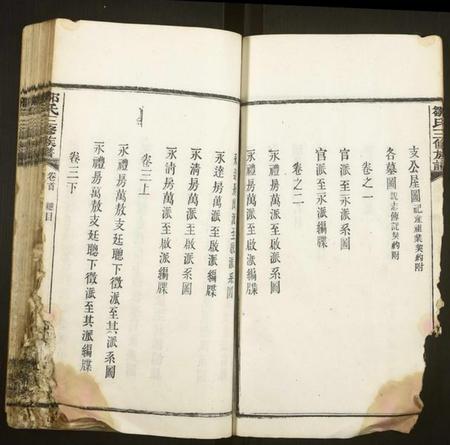 鄒氏三修族譜
支公屋圖 記產祖業契約附
各墓圖 說志傳記契約附
卷之一
官派至永派系圖
官派至永派編牒
卷之二
永禮房萬派至啟派系圖
永禮房萬派至啟派編牒
永達房萬派至啟派系圖
永達房萬派至啟派編牒
永清房萬派至啟派系圖
永清房萬派至啟派編牒
卷三上
永禮房萬敖支廷聽下徵派至其派系圖
永禮房萬敖支廷聽下徵派至其派編牒
卷三下
鄒氏三修族譜 卷首 總目